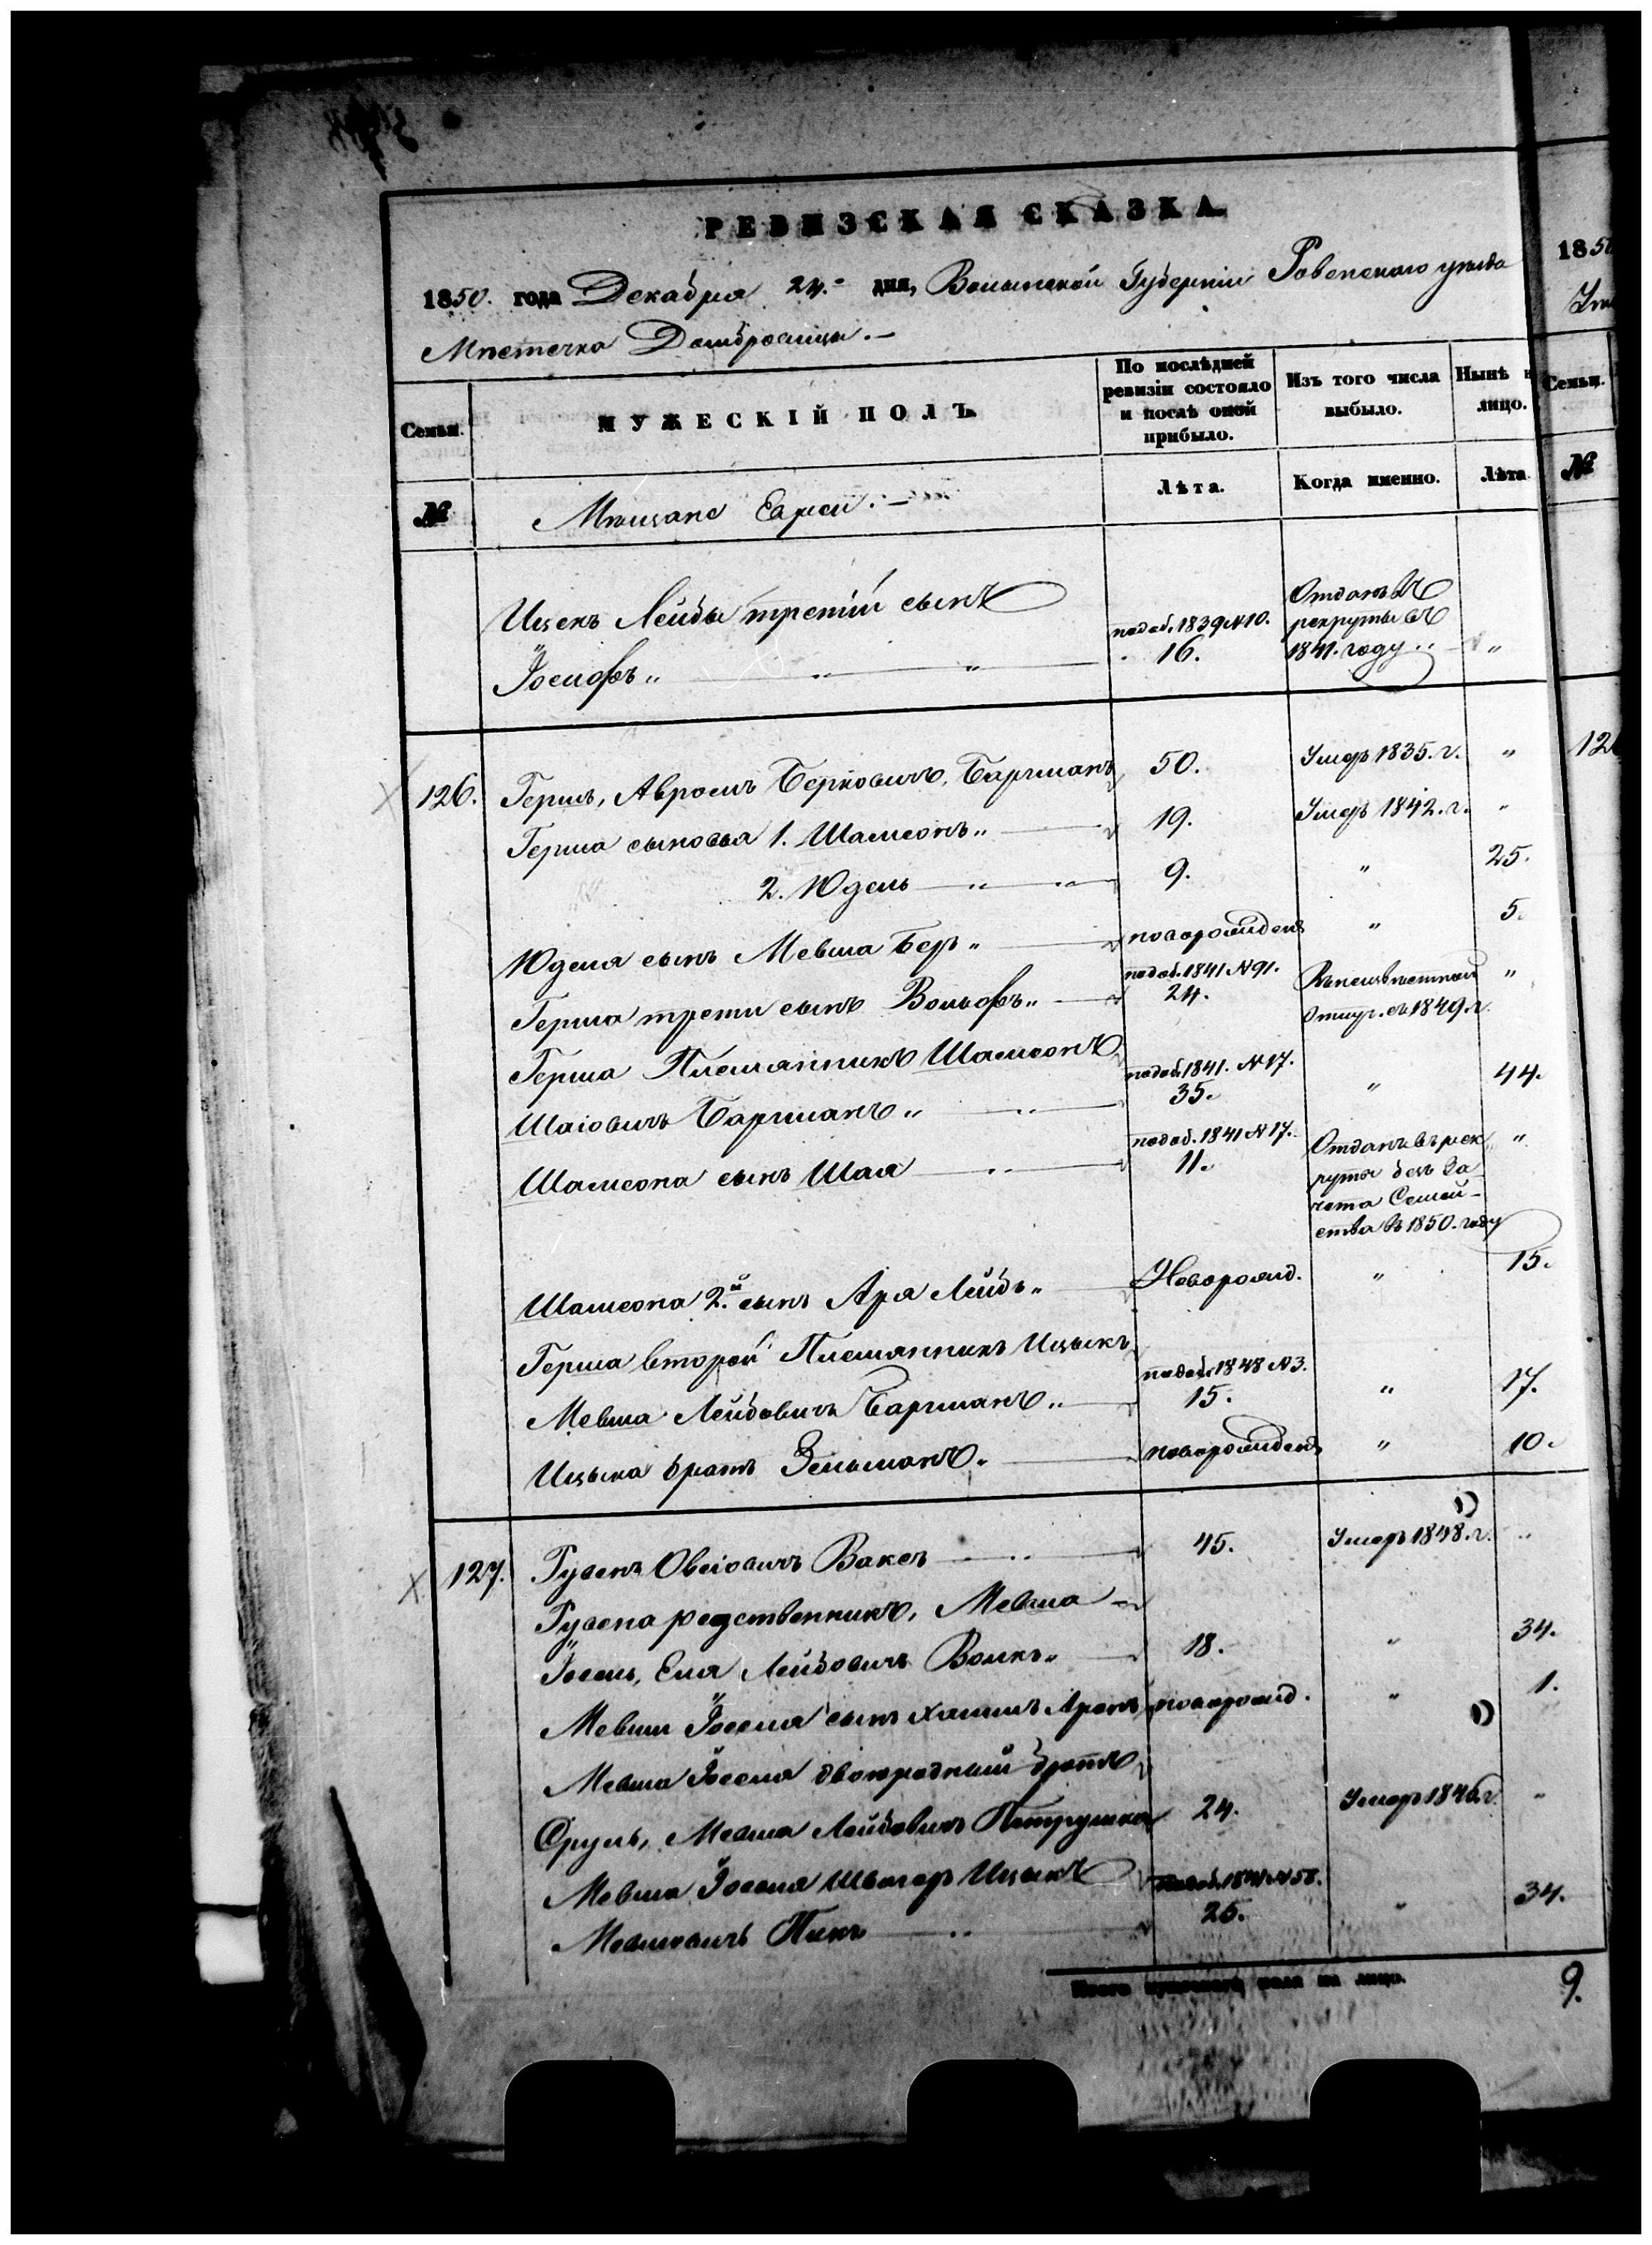 РЕВИЗСКАЯ СКАЗКА
1850. года Декабря 24. дня, Волынской Губерніи Ровенскаго уѣзда
Мѣстечка Домбровицы. —
Семьи.
МУЖЕСКІЙ ПОЛЪ
По послѣдней ревизіи состояло и послѣ оной прибыло.
Изъ того числа выбыло.
Нынѣ н лицо.
№
Мѣщане Евреи. —
Лѣта.
Когда именно.
Лѣта
Ицекъ Лейбы третій сынъ
Іосифъ „ „ „ подоб. 1839 №10. 16. Отданъ въ рекруты въ 1841. году „
126. Гершъ, Авромъ Берковичъ, Баргманъ 50. Умеръ 1835. г. „
Герша сыновья 1. Шамсонъ „ 19. Умеръ 1842. г. „
2. Юдель „ „ 9. „ 25.
Юделя сынъ Мевша Беръ „ новорожденъ „ 5.
Герша трети сынъ Вольфъ „ подоб. 1841 №91. 24. отлуч. съ 1849. г. „
Герша Племянникъ Шамсонъ
Шаіовичъ Баргманъ „ „ подоб. 1841. №17. 35. „ 44.
Шамсона сынъ Шая „ подоб. 1841 №17. 11. Отданъ въ рек „
руты безъ за
чета Семей-
ства въ 1850. году
Шамсона 2.й сынъ Аря Лейбъ „ Новорожд. „ 15.
Герша второй Племянникъ Ицыкъ
Мевша Лейбовичъ Баргманъ „ подоб. 1848 №3. 15. „ 17.
Ицыка братъ Зельманъ. новорожденъ „ 10.
127. Рувенъ Овсіовичъ Ваксъ „ 45. Умеръ 1848. г. „
Рувена родственникъ, Мевша
Іосель, Еля Лейбовичъ Волкъ „ 18. „ 34.
Мевши Іоселя сынъ Хаимъ Аронъ новорожд. „ 1.
Мевша Іоселя двоюродный братъ
Сруль, Мевша Лейбовичъ Петрушка 24. Умеръ „
Мевша Іоселя Швагеръ Ицыкъ
Мевшовичъ Пикъ „ подоб. 1841 №58. 25. „ 34.
Итого мужескаго пола на лицо. 9.
185
Семьи.
№